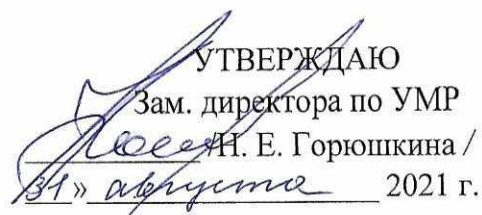 УТВЕРЖДАЮ
Зам. директора по УМР
/Н. Е. Горюшкина /
31» августа 2021 г.